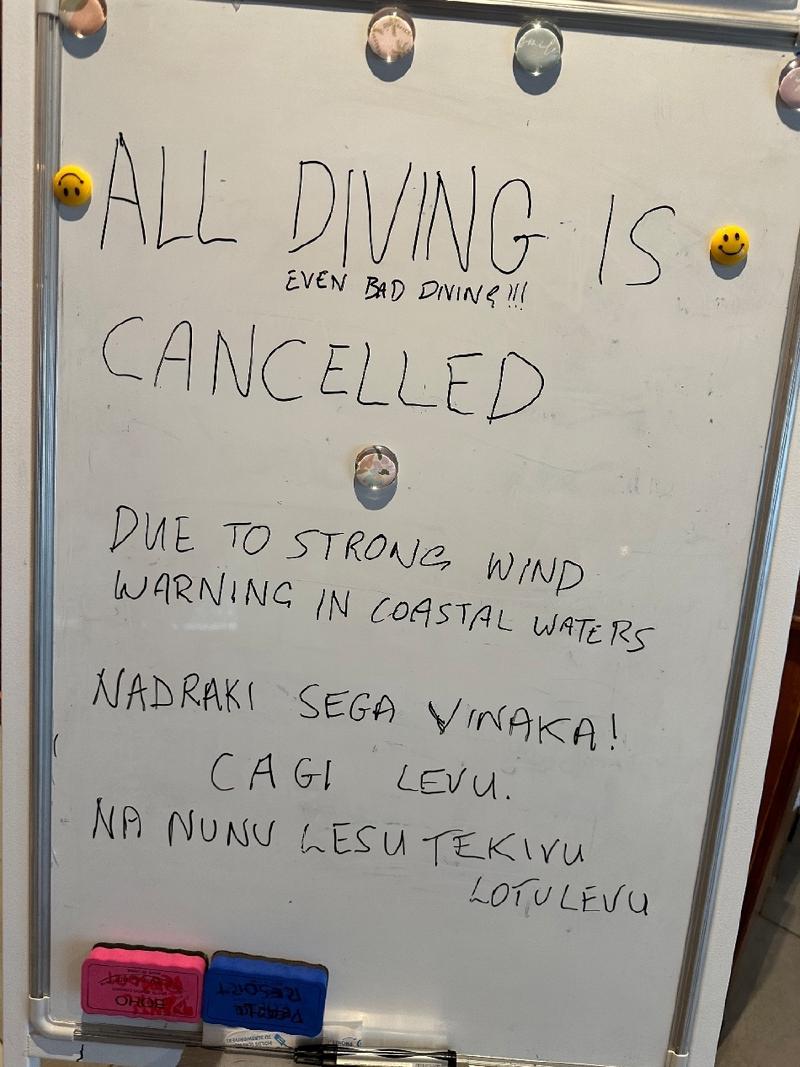 ALL DIVING IS
EVEN BAD DIVING!!!
CANCELLED
DUE TO STRONG WIND
WARNING IN COASTAL WATERS
NADRAKI SEGA VINAKA!
CAGI LEVU.
NA NUNU LESU TEKIVU
LOTULEVU
smile
BOHO